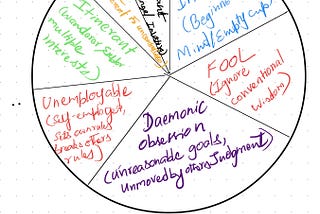 Itinerant
(wanderer, Seeker
multiple
interests)
(Beginner
Mind/Empty cup)
FOOL
(Ignore
conventional
wisdom)
Unemployable
(self-employed,
sets own rules
breaks others
rules)
Daemonic
Obsession
(unreasonable goals,
Unmoved by others Judgment)